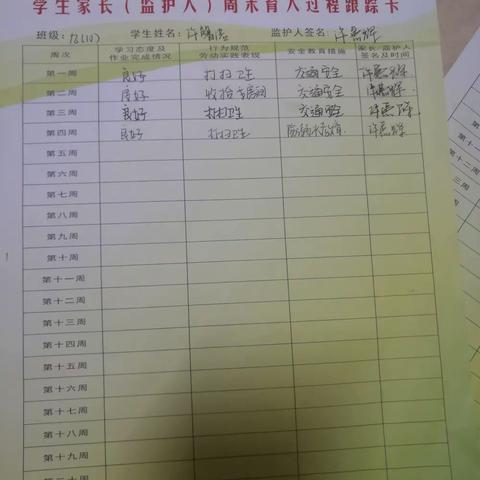 学生家长(监护人)周末育人过程跟踪卡
班级: 学生姓名: 许 监护人签名:
周次 学习态度及作业完成情况 行为规范劳动实践表现 安全教育措施 家长/监护人签名及时间
第一周 良好 打扫卫生 交通安全
第二周 良好 收拾房间 交通安全
第三周 良好 打扫卫生 交通安全
第四周 良好 打扫卫生 防溺水
第五周
第六周
第七周
第八周
第九周
第十周
第十一周
第十二周
第十三周
第十四周
第十五周
第十六周
第十七周
第十八周
第十九周